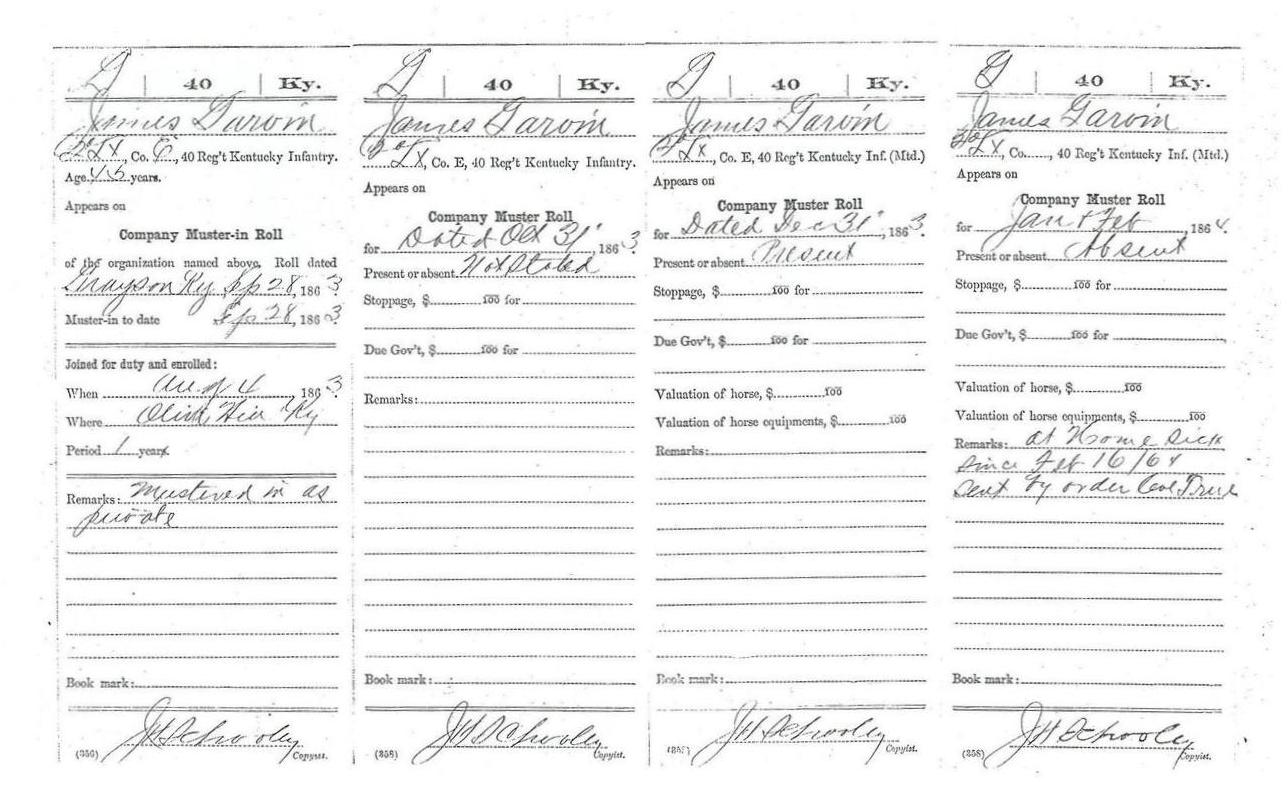 G | 40 | Ky.
James Garvin
Co. E, 40 Reg't Kentucky Infantry.
Age 43 years.
Appears on
Company Muster-in Roll
of the organization named above. Roll dated
Grayson Ky Sep 28, 1863.
Muster-in to date Sep 28, 1863.
Joined for duty and enrolled:
When Aug 4, 1863
Where Olive Hill Ky
Period 1 years.
Remarks: Mustered in as
private
Book mark:
J H Schooley
(356) Copyist.
G | 40 | Ky.
James Garvin
Co. E, 40 Reg't Kentucky Infantry.
Appears on
Company Muster Roll
for Dated Oct 31, 1863.
Present or absent Not Stated
Stoppage, $ 100 for
Due Gov't, $ 100 for
Remarks:
Book mark:
J H Schooley
(358) Copyist.
G | 40 | Ky.
James Garvin
Co. E, 40 Reg't Kentucky Inf. (Mtd.)
Appears on
Company Muster Roll
for Dated Dec 31, 1863.
Present or absent Present
Stoppage, $ 100 for
Due Gov't, $ 100 for
Valuation of horse, $ 100
Valuation of horse equipments, $ 100
Remarks:
Book mark:
J H Schooley
Copyist.
G | 40 | Ky.
James Garvin
Co. , 40 Reg't Kentucky Inf. (Mtd.)
Appears on
Company Muster Roll
for Jan & Feb, 1864.
Present or absent Absent
Stoppage, $ 100 for
Due Gov't, $ 100 for
Valuation of horse, $ 100
Valuation of horse equipments, $ 100
Remarks: at Home Sick
since Feb 16/64
sent by order Col True
Book mark:
J H Schooley
(358) Copyist.